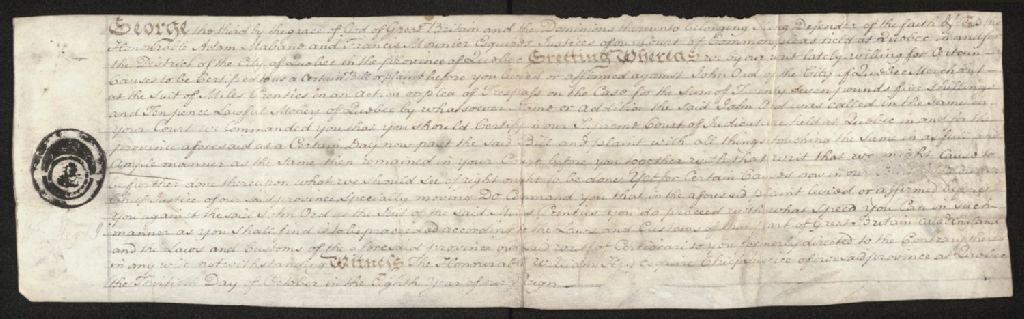 George the third by the grace of God of Great Britain and the Dominions thereunto belonging King Defender of the faith &c To the
Honourable Adam Mabane and Francis Mounier Esquires Justices of our Court of Common pleas held at Quebec in and for
the District of the City of Quebec in the Province of Quebec Greeting Whereas we by our writ lately willing for Certain
Causes to be Certified a Certain Bill plaint before you levied or affirmed against John Ord of the City of Quebec Merchant
at the Suit of Miles Prenties in an Action or plea of Trespass on the Case for the Sum of Twenty Seven pounds five shillings
and Ten pence Lawful Money of Quebec by whatsoever Name or Addition the said John Ord was called in the Same in
Your Court we Commanded you that you should Certify in our Supreme Court of Judicature held at Quebec in and for the
province aforesaid at a Certain Day now past the said Bill and plaint with all things touching the same in as full and
ample manner as the same then remained in your Court before you together with that writ that we might Cause to
be further done thereupon what we should see of right ought to be done Yet for Certain Causes now in our
Chief Justice of our said province specially moving Do Command you that in the aforesaid plaint levied or affirmed before
You against the said John Ord at the Suit of the said Miles Prenties you do proceed with what speed you Can in such
manner as you shall find to be proceeded according to the Laws and Customs of that part of Great Britain called England
and the Laws and Customs of the aforesaid province our said writ of Certiorari to you formerly directed to the Contrary thereof
in any wise notwithstanding Witness The Honourable William Hey esquire Chief Justice of our said province at Quebec
the Day of October in the Eighth Year of our Reign